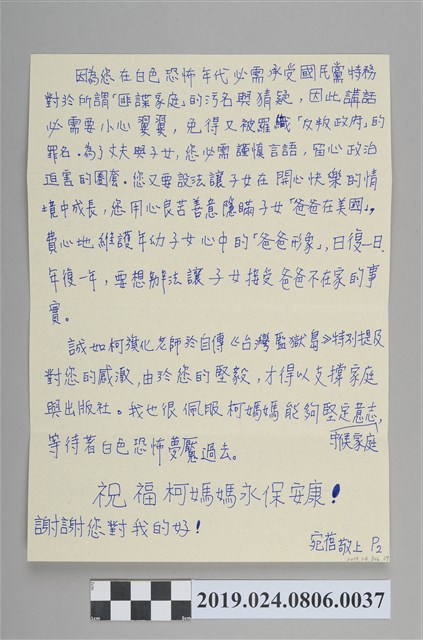 因為您在白色恐怖年代必需承受國民黨特務
對於所謂「匪諜家庭」的污名與猜疑，因此講話
必需要小心翼翼，免得又被羅織「反叛政府」的
罪名。為了丈夫與子女，您必需謹慎言語，留心政治
迫害的圈套。您又要設法讓子女在開心快樂的情
境中成長，您用心良苦善意隱瞞子女「爸爸在美國」，
費心地維護年幼子女心中的「爸爸形象」，日復一日、
年復一年，要想辦法讓子女接受爸爸不在家的事
實。
誠如柯旗化老師於自傳《台灣監獄島》特別提及
對您的感激，由於您的堅毅，才得以支撐家庭
與出版社。我也很佩服柯媽媽能夠堅定意志，
守候家庭
等待著白色恐怖夢魘過去。
祝福柯媽媽永保安康！
謝謝您對我的好！
宛蓓敬上 P2
2019.024.0806.0037